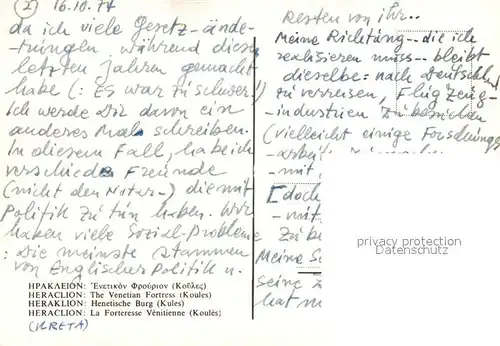 (2) 16.10.77
da ich viele Gesetz-ände-
rungen während diesen
letzten Jahren gemacht
habe (: Es war zu schwer!)
Ich werde Dir davon ein
anderes Mal schreiben.
In diesem Fall, habe ich
verschiede Freunde
(nicht den Notar-) die mit
Politik zu tun haben. Wir
haben viele Sozial-Probleme
: Die meinste stammen
von Englischer Politik u.
ΗΡΑΚΛΕΙΟΝ: Ἑνετικὸν Φρούριον (Κοῦλες)
HERACLION: The Venetian Fortress (Koules)
HERAKLION: Henetische Burg (Kules)
HERACLION: La Forteresse Vénitienne (Koulès)
(KRETA)
Resten von ihr..
Meine Richtung -- die ich
realisieren muss -- bleibt
dieselbe: nach Deutschld
zu verreisen, Flugzeug-
industrien zu besuchen
(vielleicht einige Forschungs
-arbeit
-mit
[doch
-mit
zu be
Meine S
seine z
hat m
propriété protégée
Datenschutz.